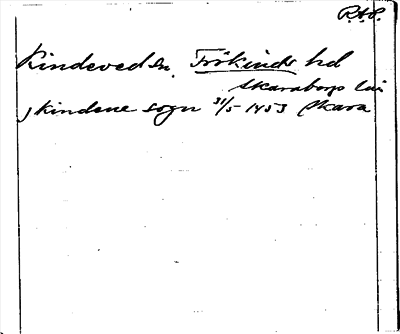 R.A.P.
Kindeved sn. Frökinds hd
Skaraborgs län
j kindene sogn 31/5 1453 Skara